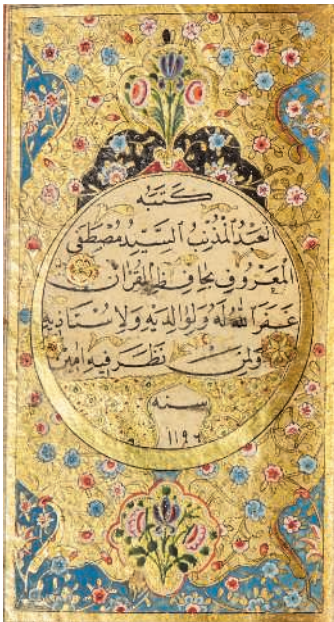 كتبه
العبد المذنب السيد مصطفى
المعروف بحافظ القرآن
غفر الله له ولوالديه ولاستاذيه
ولمن نظر فيه امين
سنه
١١٩٦